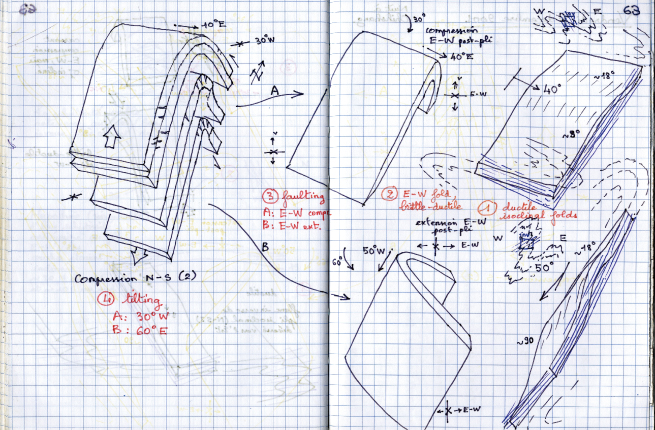 63
10°E
30°W
N
A
B
Compression N-S (2)
④ tilting
A: 30°W
B: 60°E
30°
compression
E-W post-pli
40°E
E-W
③ faulting
A: E-W comp
B: E-W ext.
② E-W fold
brittle-ductile
extension E-W
post-pli
E-W
60°
50°W
E-W
W E
~18°
40°
~9°
① ductile
isoclinal folds
W E
50°
~18°
~90